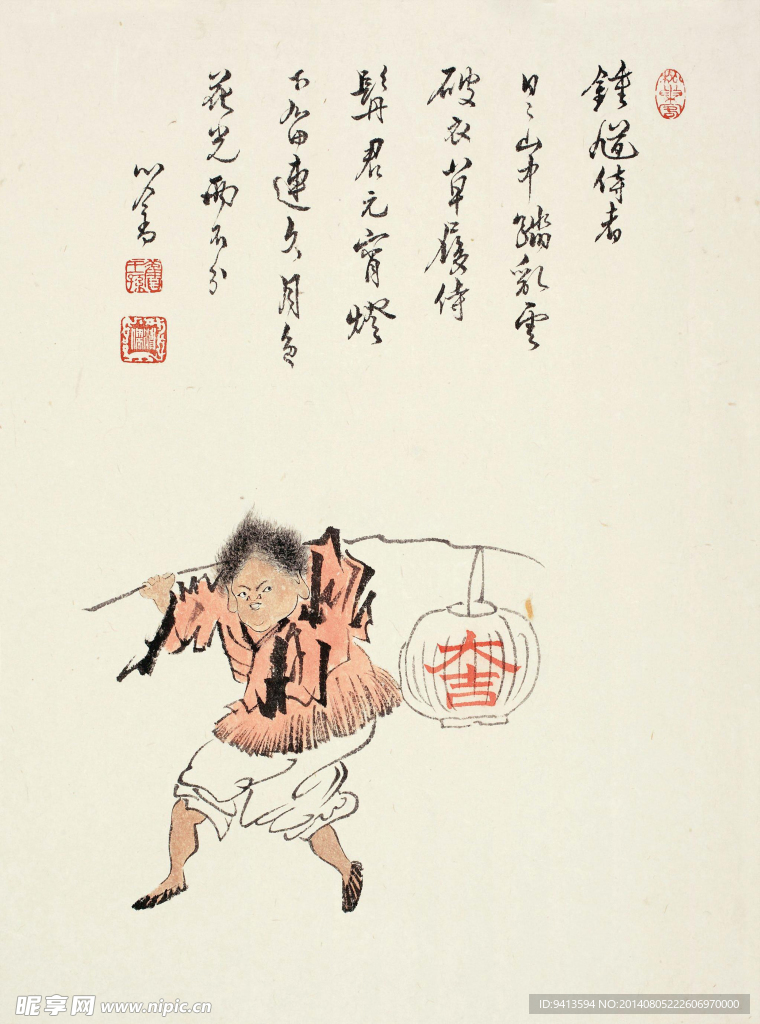 鍾馗侍者
日〻山中踏亂雲
破衣草履侍
髯君元宵燈
下留連久月色
花光兩不分
心畬
舊王孫
溥儒
大吉
昵享网 www.nipic.cn
ID:9413594 NO:20140805222606970000